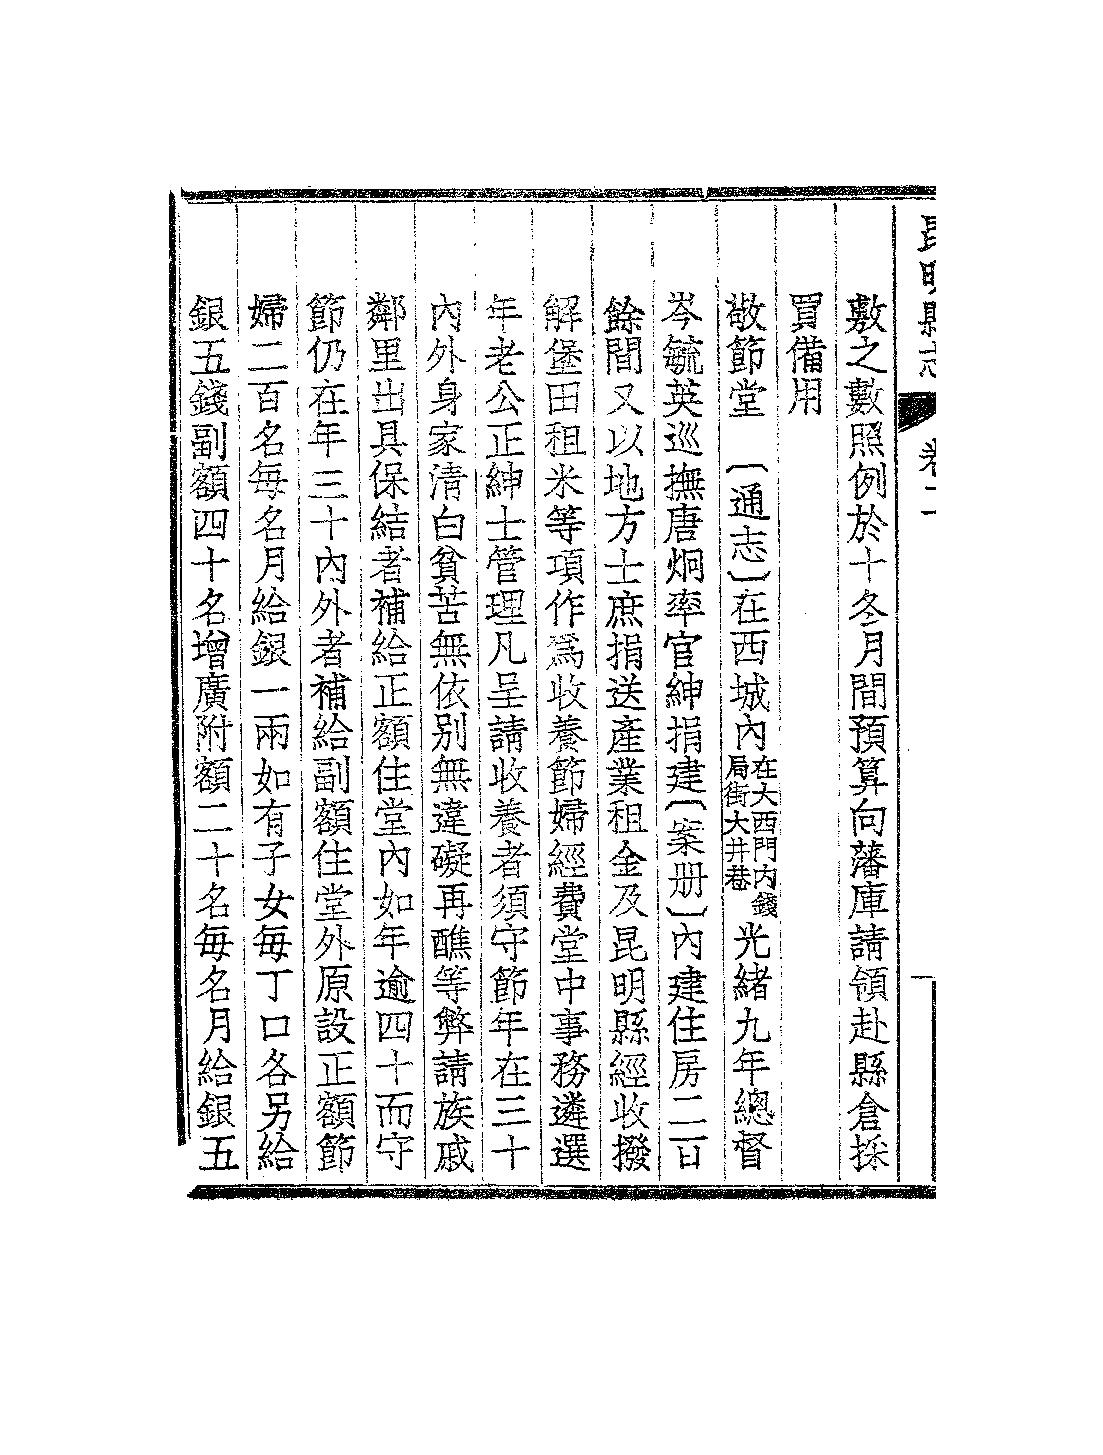 昆明縣志 卷二
敷之數照例於十冬月間預算向藩庫請領赴縣倉採
買備用
敬節堂〔通志〕在西城內在大西門內錢局街大井巷光緒九年總督
岑毓英巡撫唐炯率官紳捐建〔案册〕內建住房二百
餘間又以地方士庶捐送產業租金及昆明縣經收撥
解堡田租米等項作爲收養節婦經費堂中事務遴選
年老公正紳士管理凡呈請收養者須守節年在三十
內外身家清白貧苦無依别無違礙再醮等弊請族戚
鄰里出具保結者補給正額住堂內如年逾四十而守
節仍在年三十內外者補給副額住堂外原設正額節
婦二百名每名月給銀一兩如有子女每丁口各另給
銀五錢副額四十名增廣附額二十名每名月給銀五